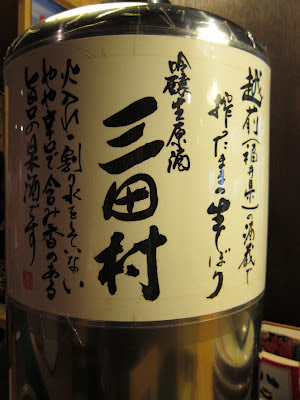 越前(福井県)の酒蔵で
搾ったままの生しぼり
吟醸生原酒
三田村
火入れ・割水をしていない
やや辛口で含み香のある
旨口の原酒です